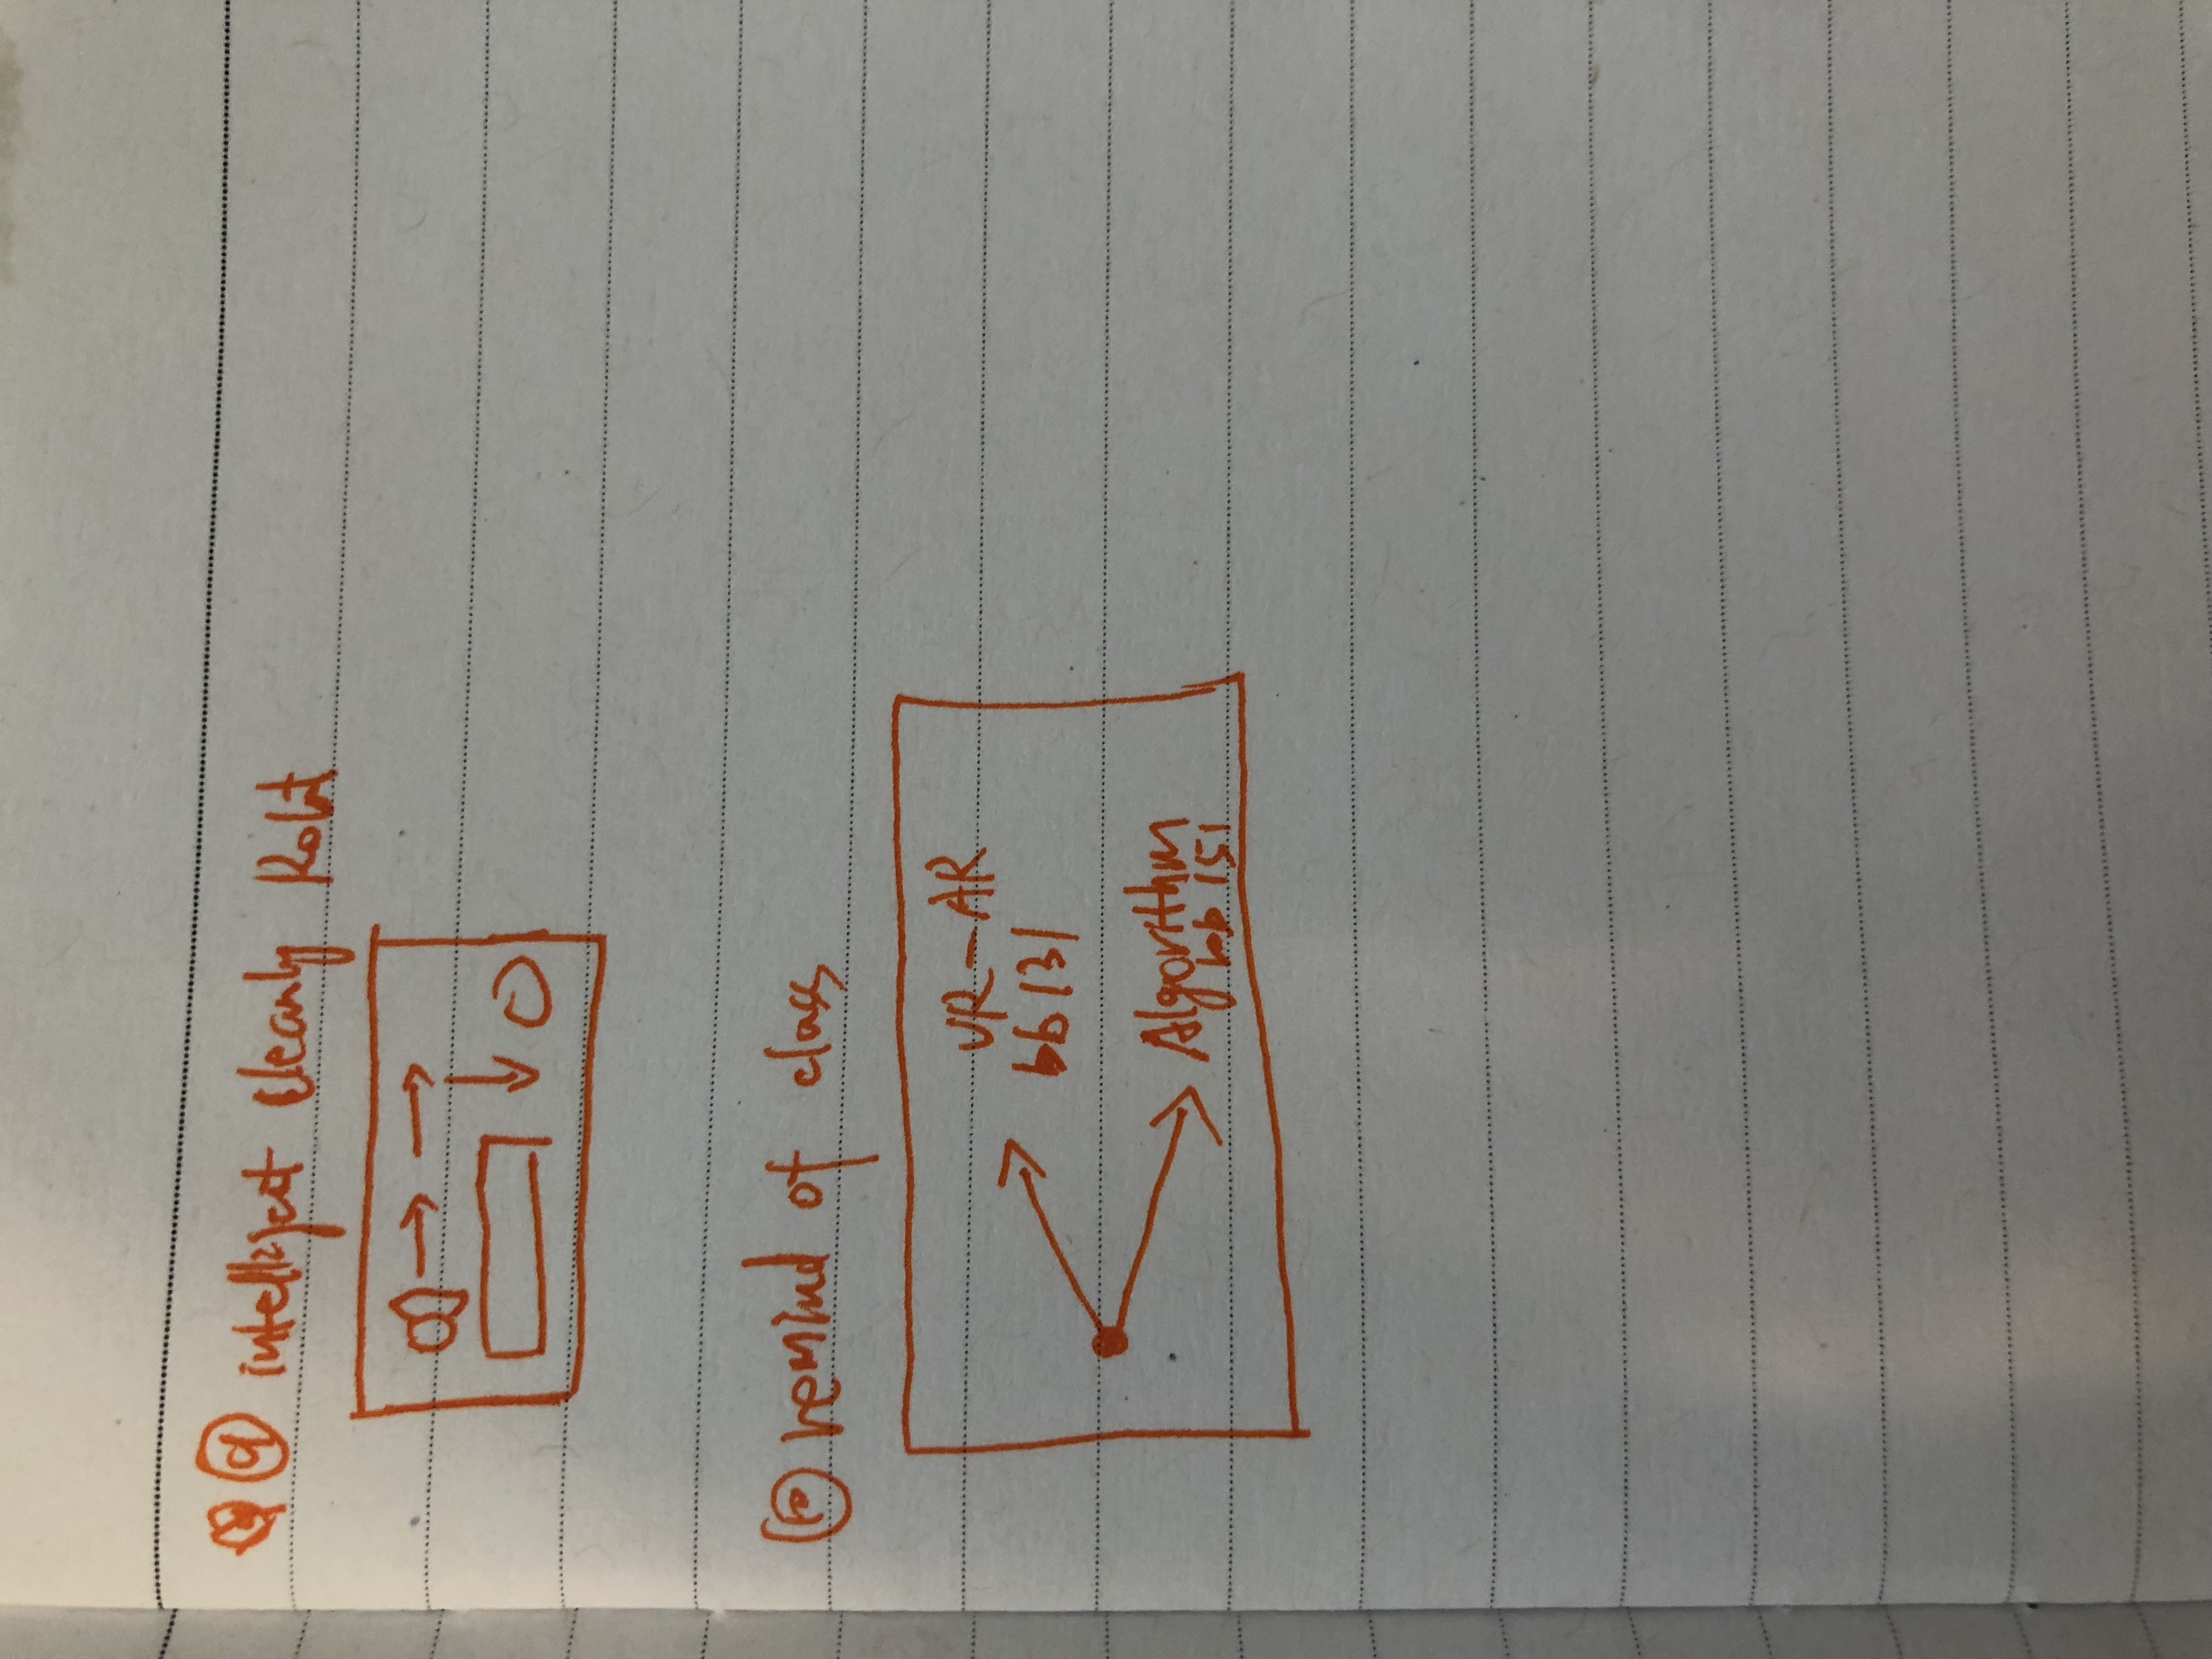 ⑨ intelligent cleanly Robot
⑩ remind of class
VR-AR
bb 131
Algorithm
bb 151